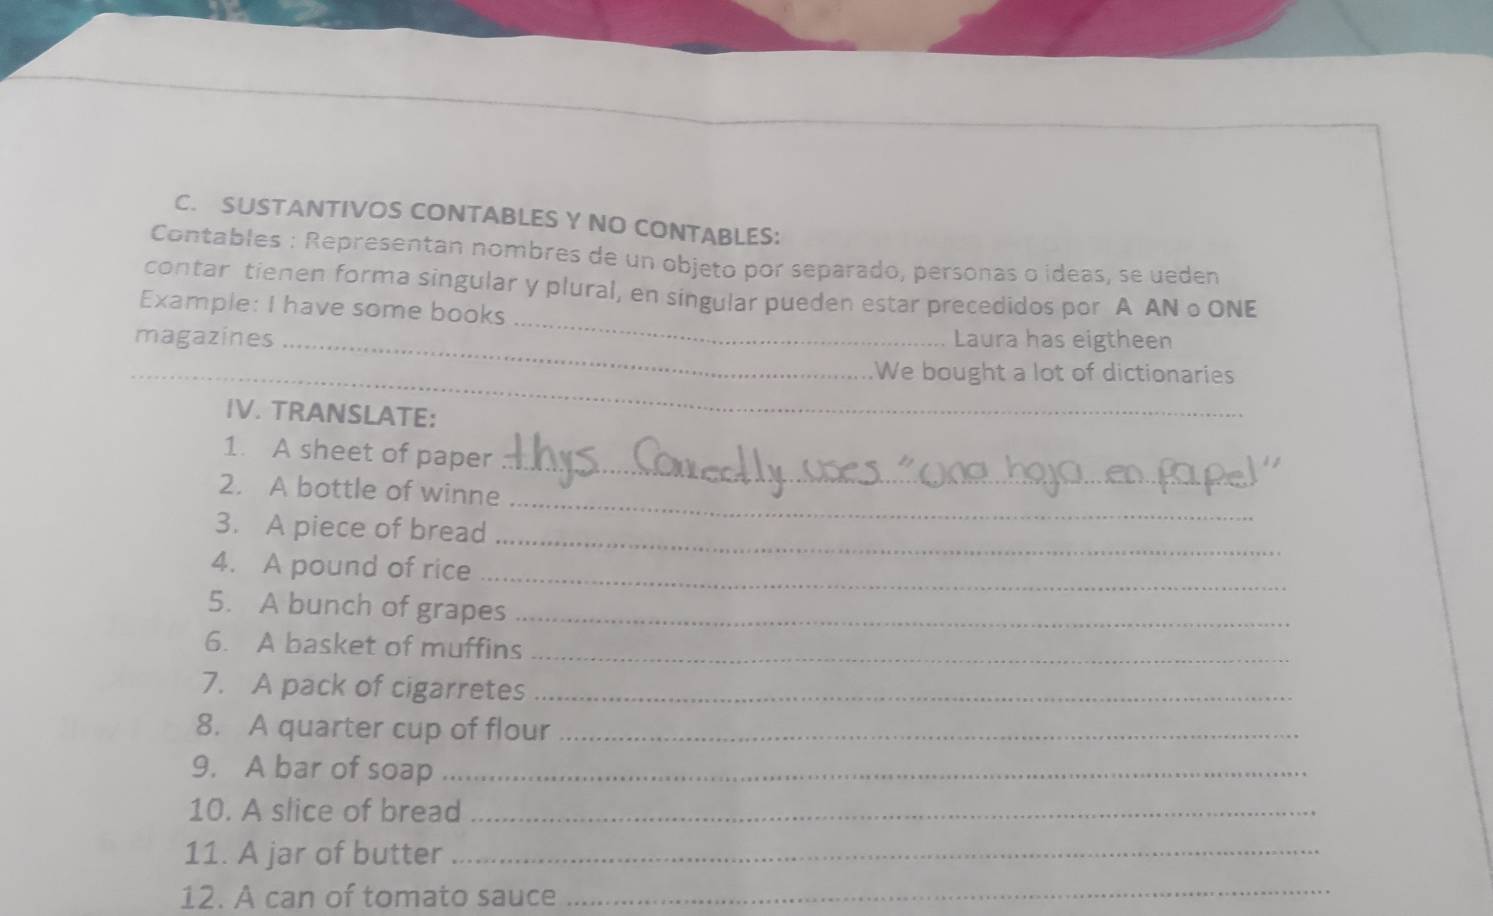 C. SUSTANTIVOS CONTABLES Y NO CONTABLES:
Contables : Representan nombres de un objeto por separado, personas o ideas, se ueden
contar tienen forma singular y plural, en singular pueden estar precedidos por A AN o ONE
Example: I have some books ........ Laura has eigtheen
magazines ........ We bought a lot of dictionaries
........
IV. TRANSLATE:
1. A sheet of paper thys Correctly uses "una hoja en papel"
2. A bottle of winne ........
3. A piece of bread ........
4. A pound of rice ........
5. A bunch of grapes ........
6. A basket of muffins ........
7. A pack of cigarretes ........
8. A quarter cup of flour ........
9. A bar of soap ........
10. A slice of bread ........
11. A jar of butter ........
12. A can of tomato sauce ........